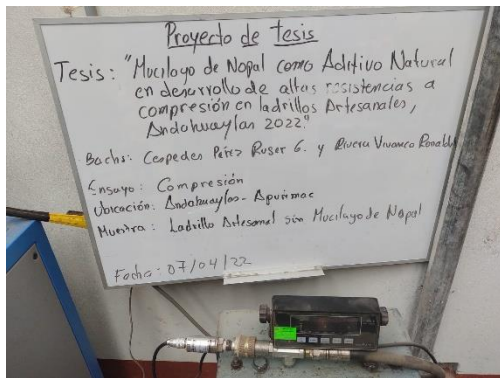 Proyecto de tesis
Tesis: "Mucilago de Nopal como Aditivo Natural
en desarrollo de altas resistencias a
compresión en ladrillos Artesanales,
Andahuaylas 2022."
Bachs: Cespedes Perez Ruser G. y Rivera Vivanco Ronaldo
Ensayo: Compresión
Ubicación: Andahuaylas - Apurimac
Muestra: Ladrillo Artesanal sin Mucilago de Nopal
Fecha: 07/04/22